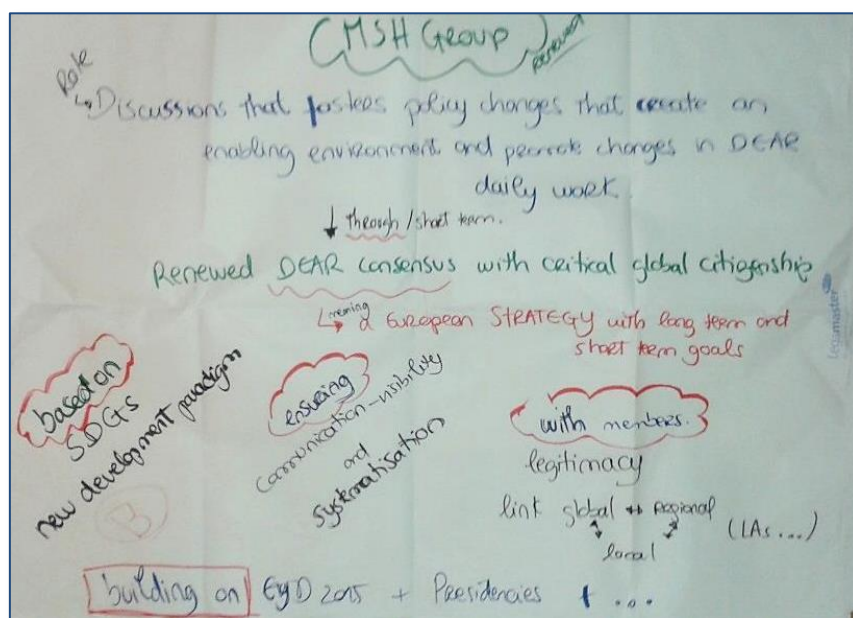 (MSH Group)
Renewed
Role
↳ Discussions that fosters policy changes that create an
enabling environment and promote changes in DEAR
daily work.
↓ through / short term.
Renewed DEAR consensus with critical global citizenship
a European STRATEGY with long term and
short term goals
based on
SDGs
new development paradigm
B
ensuring
communication-visibility
and
systematisation
with members.
legitimacy
link global ↔ regional
local
(LAs...)
building on EYD 2015 + Presidencies + ...
legamaster